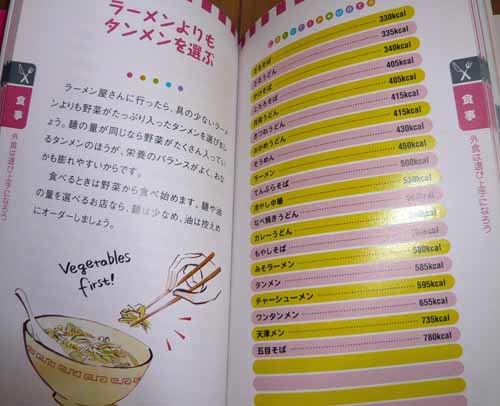 ラーメンよりも
タンメンを選ぶ
ラーメン屋さんに行ったら、具の少ないラー
メンよりも野菜がたっぷり入ったタンメンを選びまし
ょう。麺の量が同じなら野菜がたくさん入ってい
るタンメンのほうが、栄養のバランスがよく、おな
かも膨れやすいからです。
食べるときは野菜から食べ始めます。麺や油
の量を選べるお店なら、麺は少なめ、油は控えめ
にオーダーしましょう。
Vegetables
first!
食事
外食は選び上手になろう
330kcal
335kcal
かけそば 340kcal
とろろそば 405kcal
月見うどん 405kcal
きつねうどん 415kcal
おかめうどん 415kcal
そうめん 430kcal
ラーメン 450kcal
てんぷらそば 500kcal
冷やし中華
なべ焼きうどん
カレーうどん
もやしそば
みそラーメン 580kcal
タンメン 585kcal
チャーシューメン 595kcal
ワンタンメン 655kcal
天津メン 735kcal
五目そば 780kcal
食事
外食は選び上手になろう